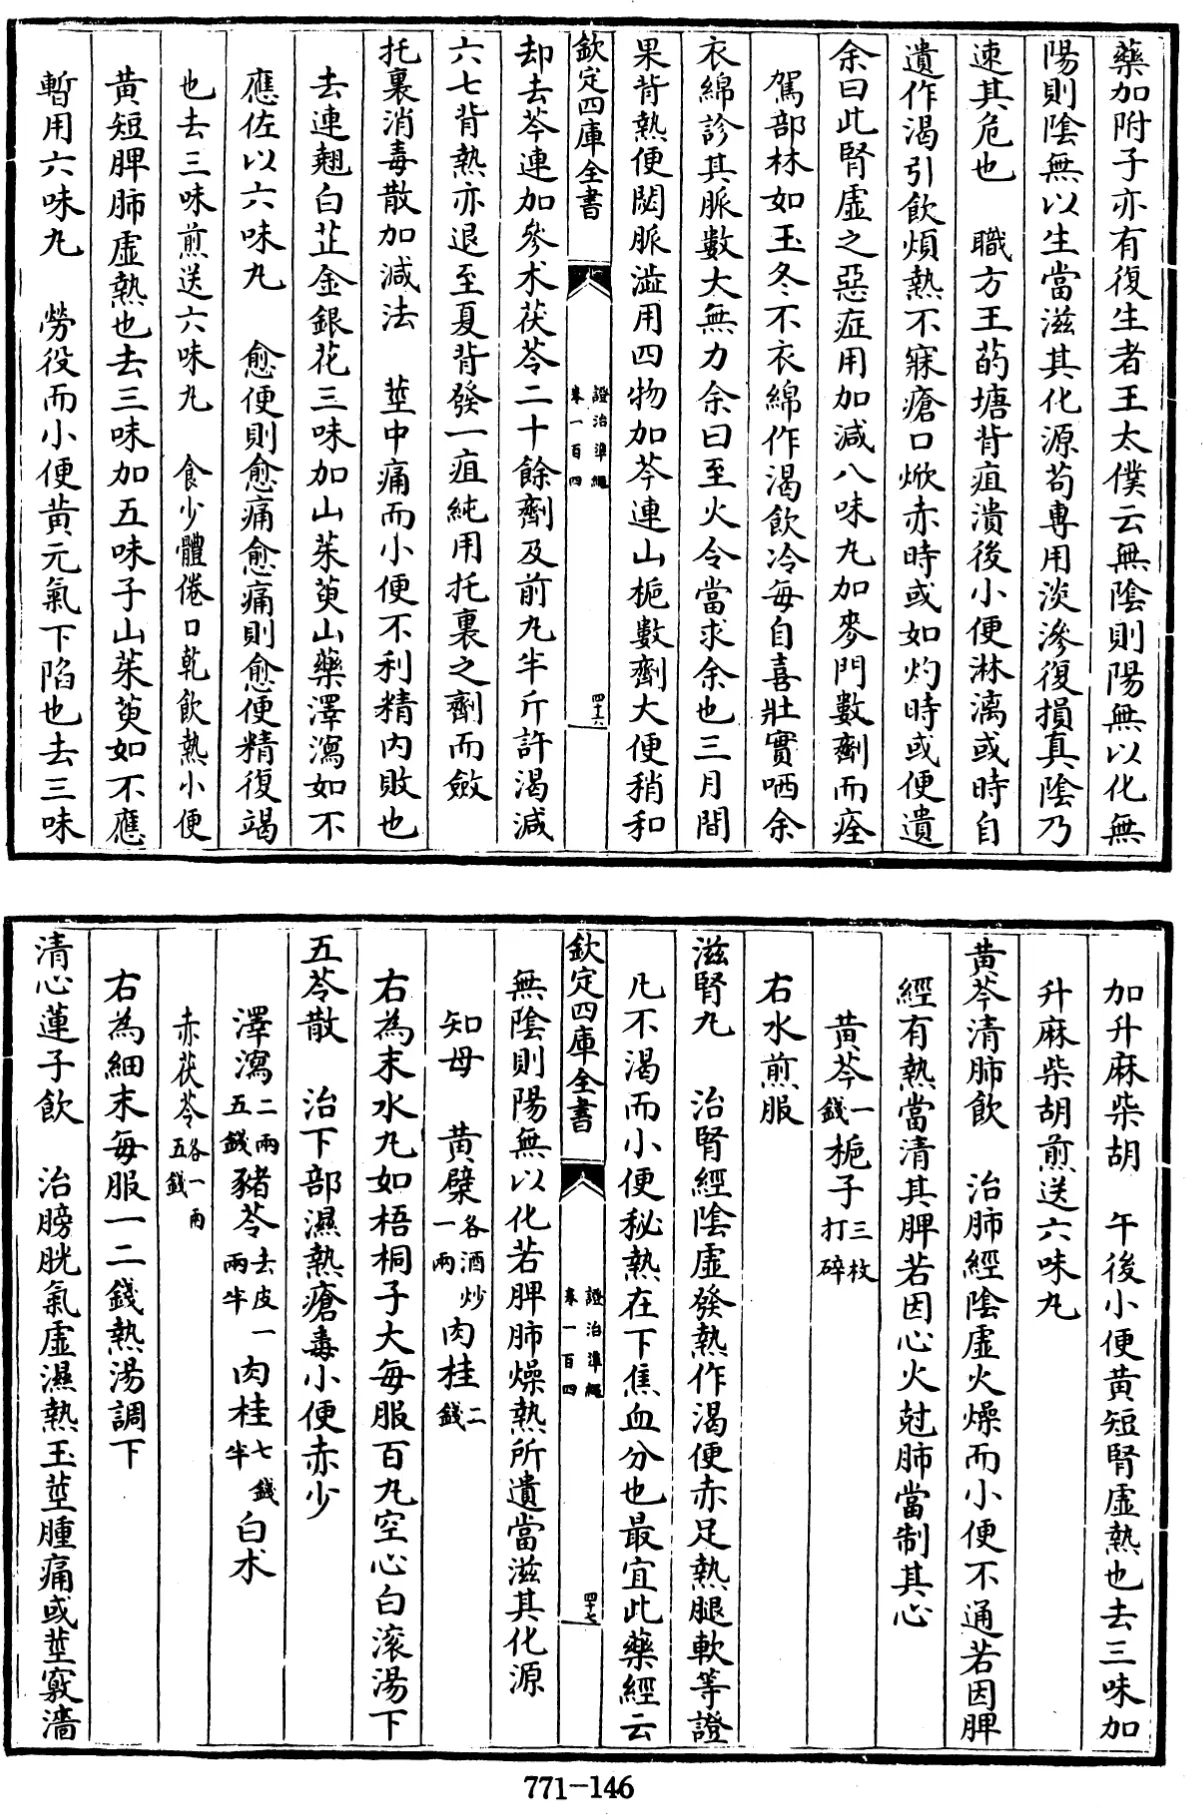 藥加附子亦有復生者王太僕云無陰則陽無以化無
陽則陰無以生當滋其化源苟專用淡滲復損真陰乃
速其危也　職方王菂塘背疽潰後小便淋漓或時自
遺作渴引飲煩熱不寐瘡口焮赤時或如灼時或便遺
余曰此腎虛之惡症用加減八味丸加麥門數劑而痊
駕部林如玉冬不衣綿作渴飲冷每自喜壯實哂余
衣綿診其脈數大無力余曰至火令當求余也三月間
果背熱便閟脈澁用四物加芩連山梔數劑大便稍和
欽定四庫全書　證治準繩　卷一百四　四十六
却去芩連加參朮茯苓二十餘劑及前丸半斤許渴減
六七背熱亦退至夏背發一疽純用托裏之劑而斂
托裏消毒散加減法　莖中痛而小便不利精內敗也
去連翹白芷金銀花三味加山茱萸山藥澤瀉如不
應佐以六味丸　愈便則愈痛愈痛則愈便精復竭
也去三味煎送六味丸　食少體倦口乾飲熱小便
黃短脾肺虛熱也去三味加五味子山茱萸如不應
暫用六味丸　勞役而小便黃元氣下陷也去三味
加升麻柴胡　午後小便黃短腎虛熱也去三味加
升麻柴胡煎送六味丸
黃芩清肺飲　治肺經陰虛火燥而小便不通若因脾
經有熱當清其脾若因心火尅肺當制其心
黃芩一錢梔子三枚打碎
右水煎服
滋腎丸　治腎經陰虛發熱作渴便赤足熱腿軟等證
凡不渴而小便秘熱在下焦血分也最宜此藥經云
欽定四庫全書　證治準繩　卷一百四　四十七
無陰則陽無以化若脾肺燥熱所遺當滋其化源
知母　黃蘗各酒炒一兩肉桂二錢
右為末水丸如梧桐子大每服百丸空心白滾湯下
五苓散　治下部濕熱瘡毒小便赤少
澤瀉二兩五錢豬苓去皮一兩半　肉桂七錢半白朮
赤茯苓各一兩五錢
右為細末每服一二錢熱湯調下
清心蓮子飲　治膀胱氣虛濕熱玉莖腫痛或莖竅濇
771-146